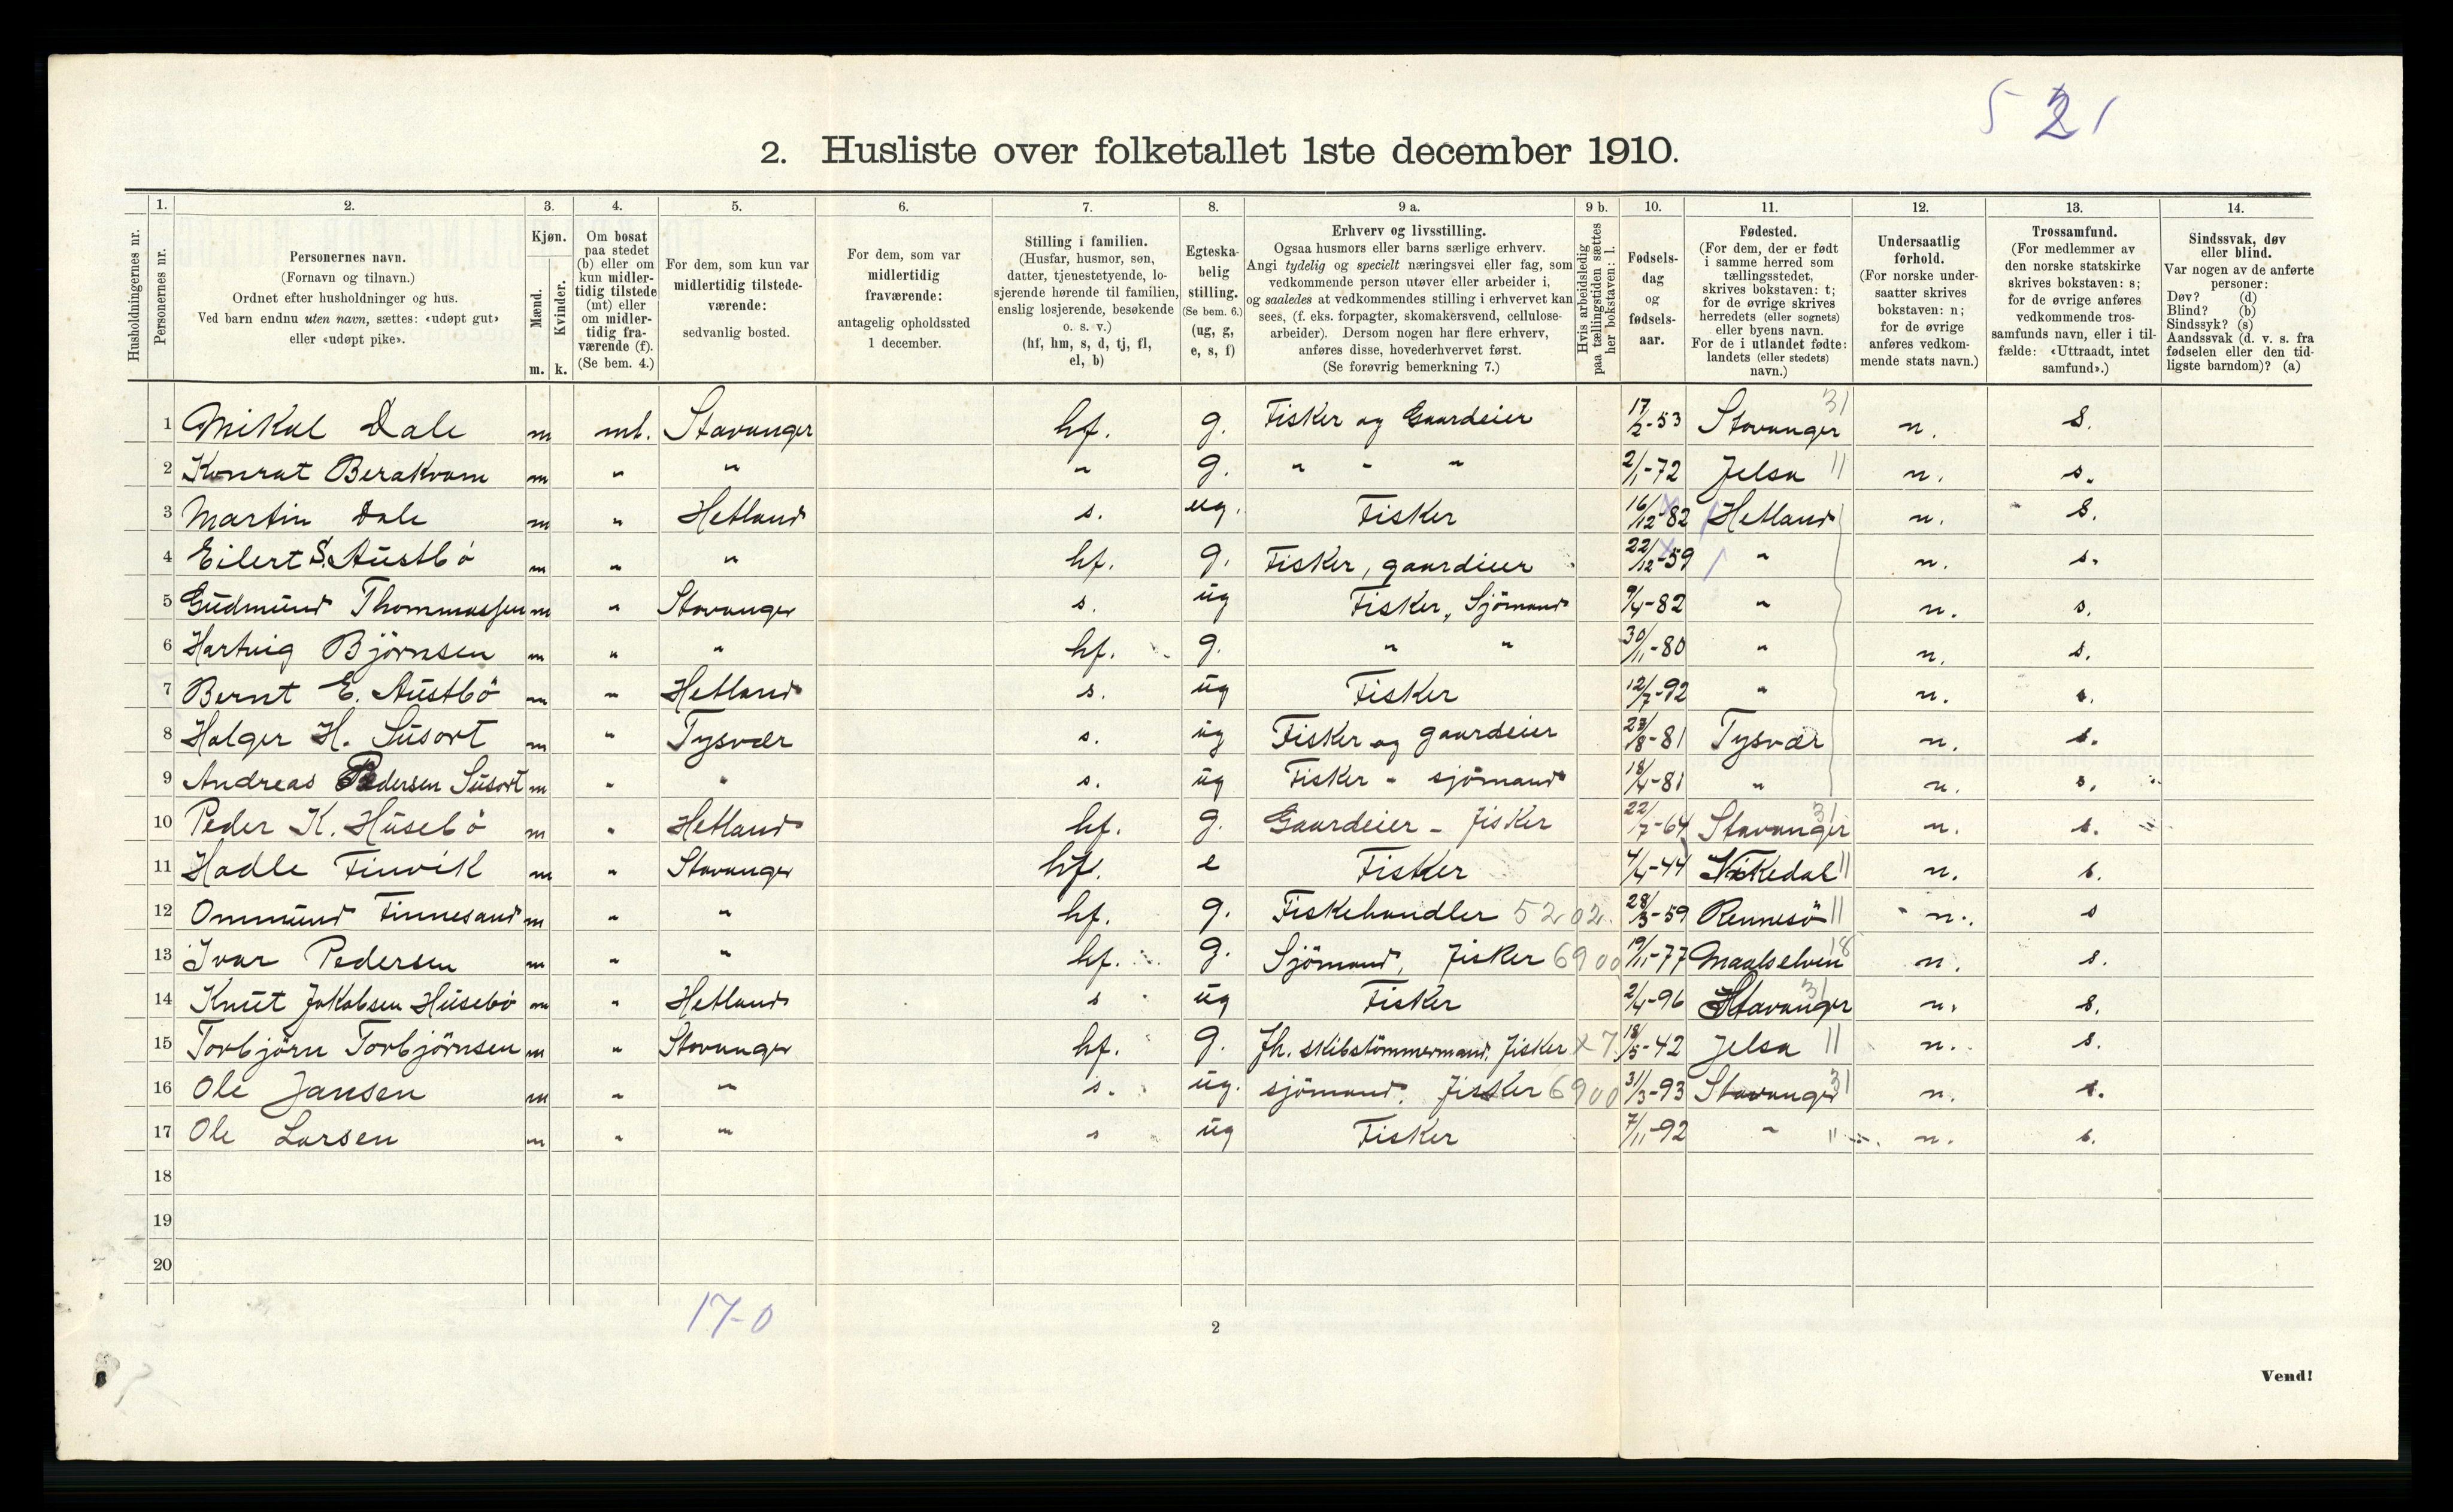 5 2 1
2. Husliste over folketallet 1ste december 1910.
Husholdningernes nr.
1.
Personernes nr.
2.
Personernes navn.
(Fornavn og tilnavn.)
Ordnet efter husholdninger og hus.
Ved barn endnu uten navn, sættes: «udøpt gut»
eller «udøpt pike».
3.
Kjøn.
Mænd.
Kvinder.
m. k.
4.
Om bosat
paa stedet
(b) eller om
kun midler-
tidig tilstede
(mt) eller
om midler-
tidig fra-
værende (f).
(Se bem. 4.)
5.
For dem, som kun var
midlertidig tilstede-
værende:
sedvanlig bosted.
6.
For dem, som var
midlertidig
fraværende:
antagelig opholdssted
1 december.
7.
Stilling i familien.
(Husfar, husmor, søn,
datter, tjenestetyende, lo-
sjerende hørende til familien,
enslig losjerende, besøkende
o. s. v.)
(hf, hm, s, d, tj, fl,
el, b)
8.
Egteska-
belig
stilling.
(Se bem. 6.)
(ug, g,
e, s, f)
9 a.
Erhverv og livsstilling.
Ogsaa husmors eller barns særlige erhverv.
Angi tydelig og specielt næringsvei eller fag, som
vedkommende person utøver eller arbeider i,
og saaledes at vedkommendes stilling i erhvervet kan
sees, (f. eks. forpagter, skomakersvend, cellulose-
arbeider). Dersom nogen har flere erhverv,
anføres disse, hovederhvervet først.
(Se forøvrig bemerkning 7.)
9 b.
Hvis arbeidsledig
paa tællingstiden sættes
her bokstaven: l.
10.
Fødsels-
dag
og
fødsels-
aar.
11.
Fødested.
(For dem, der er født
i samme herred som
tællingsstedet,
skrives bokstaven: t;
for de øvrige skrives
herredets (eller sognets)
eller byens navn.
For de i utlandet fødte:
landets (eller stedets)
navn.)
12.
Undersaatlig
forhold.
(For norske under-
saatter skrives
bokstaven: n;
for de øvrige
anføres vedkom-
mende stats navn.)
13.
Trossamfund.
(For medlemmer av
den norske statskirke
skrives bokstaven: s;
for de øvrige anføres
vedkommende tros-
samfunds navn, eller i til-
fælde: «Uttraadt, intet
samfund».)
14.
Sindssvak, døv
eller blind.
Var nogen av de anførte
personer:
Døv? (d)
Blind? (b)
Sindssyk? (s)
Aandssvak (d. v. s. fra
fødselen eller den tid-
ligste barndom)? (a)
1 Mikal Dale m mt. Stavanger hf. g. Fisker og Gaardeier 17/2-53 Stavanger 31 n. s.
2 Konrat Berakvam m " " " g. " - " 2/1-72 Jelsa 11 n. s.
3 Martin Dale m " Hetland s. ug. Fisker 16/12-82 Hetland n. s.
4 Eilert S. Austbö m " " hf. g. Fisker, gaardeier 22/12-59 " n. s.
5 Gudmund Thommassen m " Stavanger s. ug Fisker, Sjömand 9/4-82 " n. s.
6 Hartvig Björnsen m " " hf. g. " " 30/11-80 " n. s.
7 Bernt E. Austbö m " Hetland s. ug Fisker 12/7-92 " n. s.
8 Holger H. Susort m " Tysvær s. ug Fisker og gaardeier 23/8-81 Tysvær n. s.
9 Andreas Pedersen Susort m " " s. ug Fisker - sjömand 18/4-81 " n. s.
10 Peder K. Husebö m " Hetland hf. g. Gaardeier - fisker 22/7-64 Stavanger 31 n. s.
11 Hadle Finvik m " Stavanger hf. e Fisker 4/4-44 Vikedal 11 n. s.
12 Ommund Finnesand m " " hf. g. Fiskehandler 5202. 28/3-59 Rennesö 11 n. s
13 Ivar Pedersen m " " hf. g. Sjömand, fisker 6900 19/11-77 Maalselven 18 n. s.
14 Knut Jakobsen Husebö m " Hetland s ug Fisker 2/4-96 Stavanger 31 n. s.
15 Torbjörn Torbjörnsen m " Stavanger hf. g. Fh. skibstömmermand, fisker x7 18/5-42 Jelsa 11 n. s.
16 Ole Jansen m " " s. ug. sjömand, fisker 6900 31/3-93 Stavanger 31 n. s.
17 Ole Larsen m " " s ug Fisker 7/11-92 " 11 n. s.
18
19
20
17-0
2
Vend!